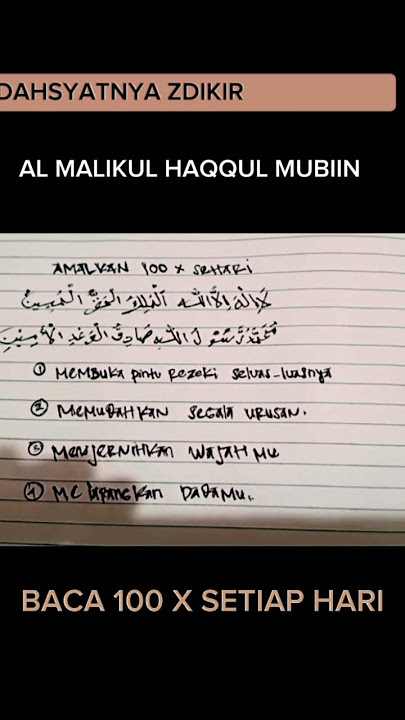 DAHSYATNYA ZDIKIR
AL MALIKUL HAQQUL MUBIIN
AMALKAN 100 x SEHARI
لَا إِلٰهَ إِلَّا اللّٰه الْمَلِكُ الْحَقُّ الْمُبِينُ
مُحَمَّدٌ رَسُوْلُ اللّٰهِ صَادِقُ الْوَعْدِ الْأَمِيْنِ
① MEMBUKA PINTU REZEKI SELUAS-LUASNYA
② MEMUDAHKAN SEGALA URUSAN.
③ MENJERNIHKAN WAJAH MU
④ MELAPANGKAN DADAMU.
BACA 100 X SETIAP HARI